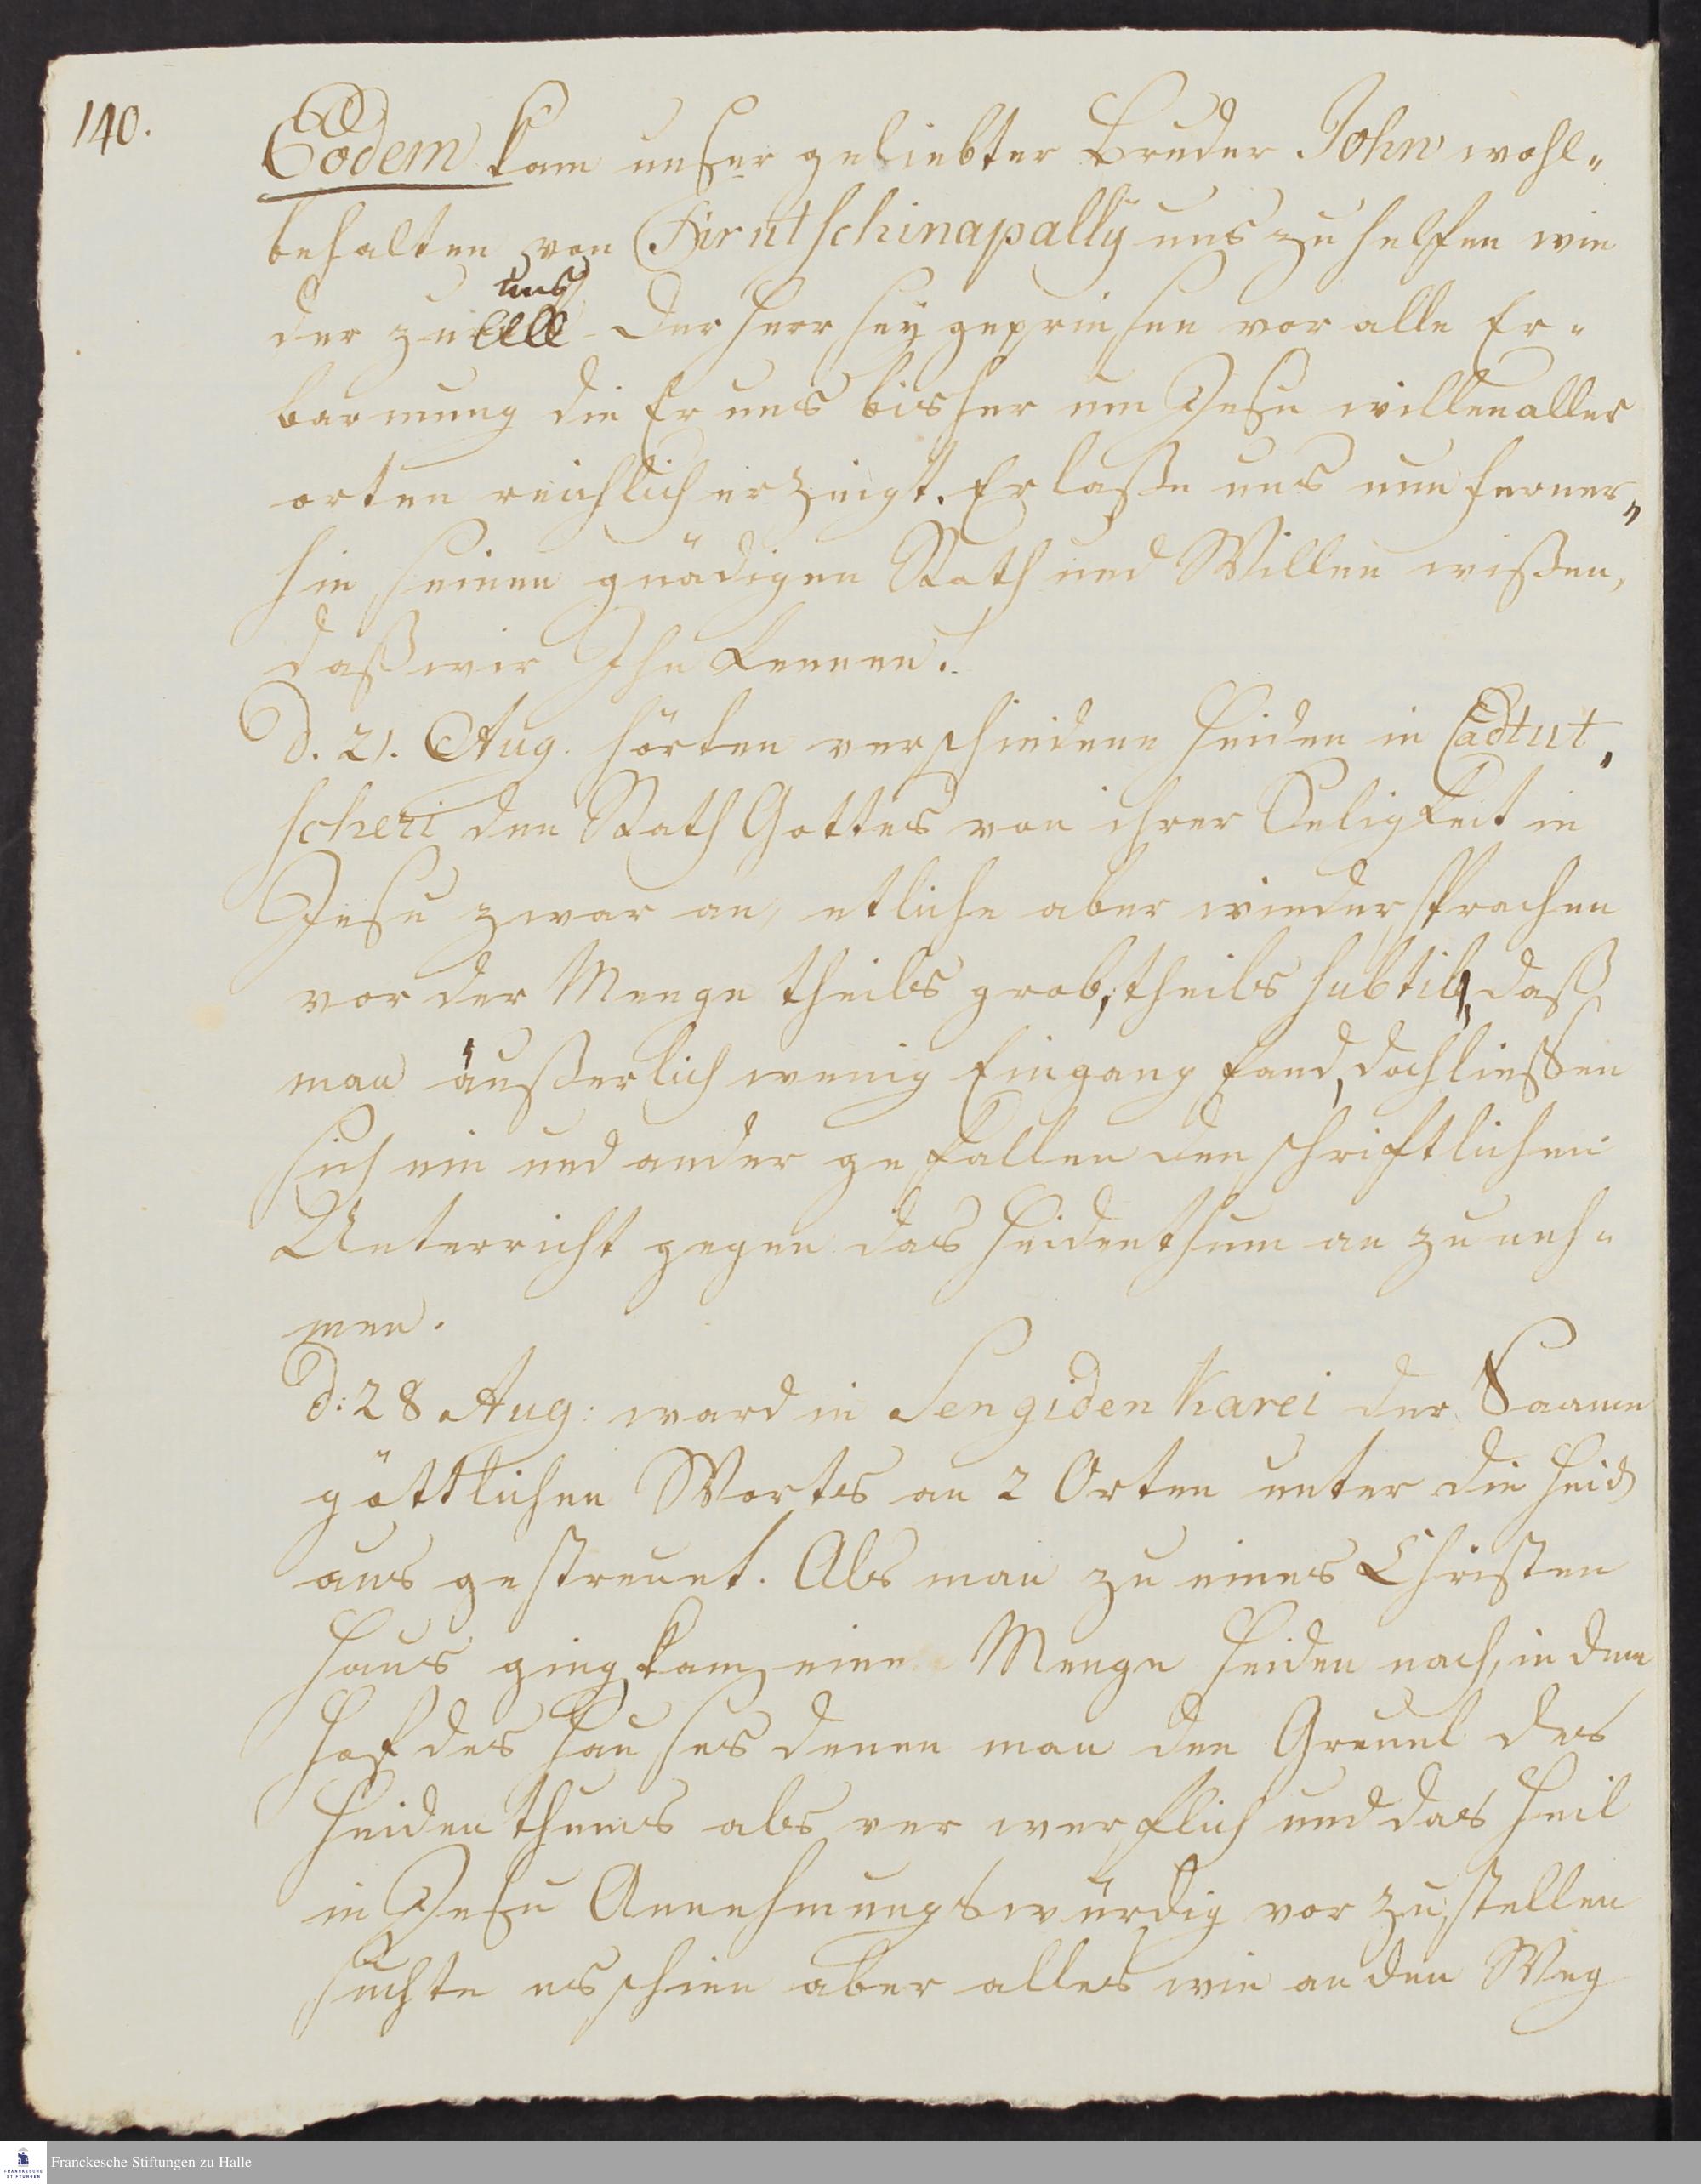 140.
Eodem kam unser geliebter Bruder John wohl„
behalten von Tirutschinapally uns zu helfen wie
uns
der zu der Herr sey gepriesen vor alle Er„
barmung die Er uns bisher um Jesu willen aller
orten reichlich erzeigt. Er laße uns nun ferner„
hin seinen gnädigen Rath und Willen wißen,
daß wir Ihn kennen!
D. 21. Aug. hörten verschiedene Heiden in Cadtut„
scheri den Rath Gottes von ihrer Seligkeit in
Jesu zwar an, etliche aber wiedersprachen
vor der Menge theils grob, theils subtil, daß
man äußerlich wenig Eingang fand, doch ließen
sich ein und ander gefallen den schriftlichen
Unterricht gegen das Heidenthum an zu neh„
men.
d: 28 Aug: ward in Sengidenkarei der Saame
göttlichen Worts an 2 Orten unter die Heid
aus gestreuet. Als man zu eines Christen
Haus ging, kam eine Menge Heiden nach, in dem
Hof des Hauses denen man den Greuel des
Heidenthums als verwerflich und das Heil
in Jesu Annehmungswürdig vor zu stellen
suchte es schien aber alles wie an den Weg
Franckesche Stiftungen zu Halle
FRANCKESCHE
STIFTUNGEN